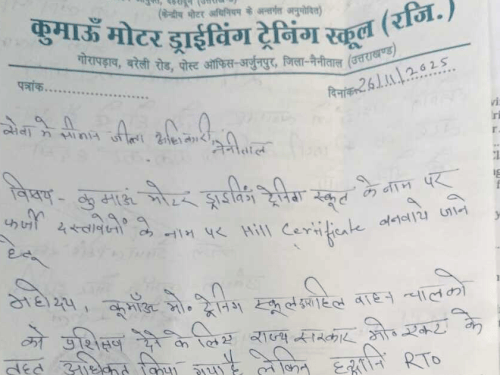 (केन्द्रीय मोटर अधिनियम के अन्तर्गत अनुमोदित)
कुमाऊँ मोटर ड्राईविंग ट्रेनिंग स्कूल (रजि.)
गोरापड़ाव, बरेली रोड, पोस्ट ऑफिस-अर्जुनपुर, जिला-नैनीताल (उत्तराखण्ड)
पत्रांक.......... दिनांक 26/11/2025
सेवा में श्रीमान जीला अधिकारी
नैनीताल
विषय - कुमाऊं मोटर ड्राइविंग ट्रेनिंग स्कूल के नाम पर
फर्जी दस्तावेजों के नाम पर Hill Cerrificate बनवाये जाने
हेतू
महोदय, कूमाँऊ मो० ट्रेनिंग स्कूल वाहन चालको
को देने के लिए राज्य सरकार मो० एक्ट के
तहत अधिकृत किया गया है लेकिन RTO